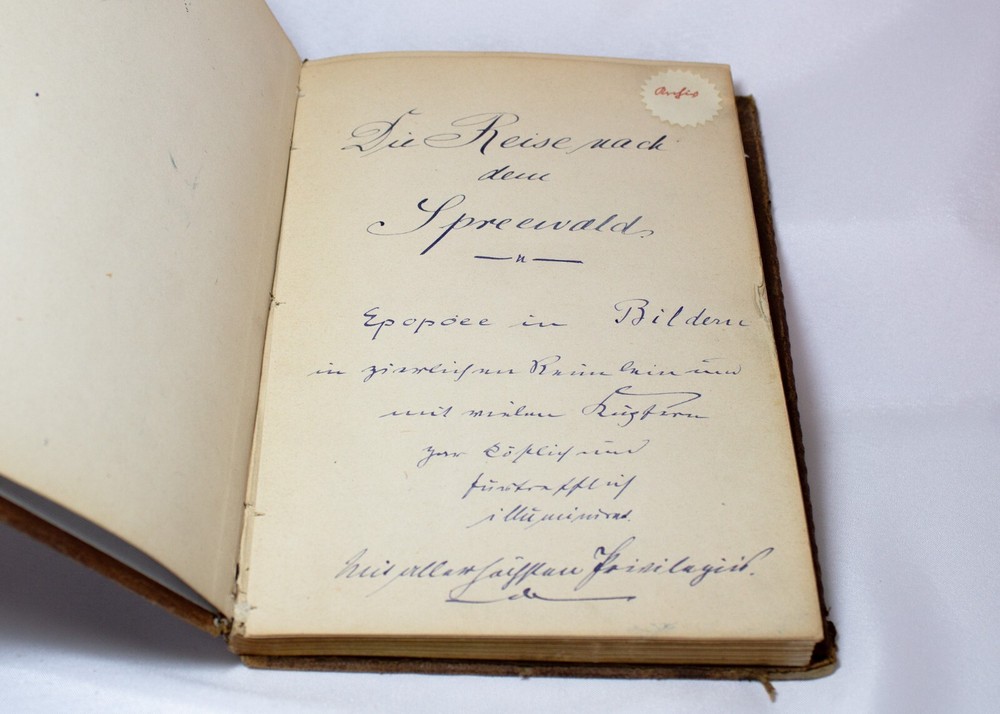 Archiv
Die Reise nach
dem
Spreewald.
Epopöee in Bildern
in zierlichen Reimlein und
mit vielen Kupfern
gar köstlich und
fürtrefflich
illuminiret.
Mit allerhöchsten Privilegiis.